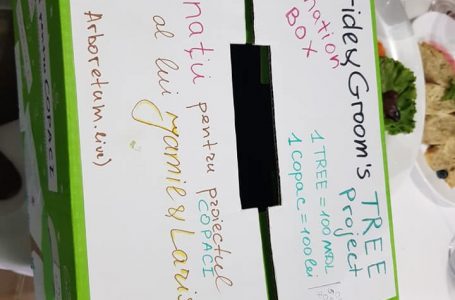 ride&Groom's TREE
project
nation
BOX
1 TREE = 100 MDL
1 Copac = 100 lei
nații pentru proiectul
COPACI
al lui
Arboretum.live)